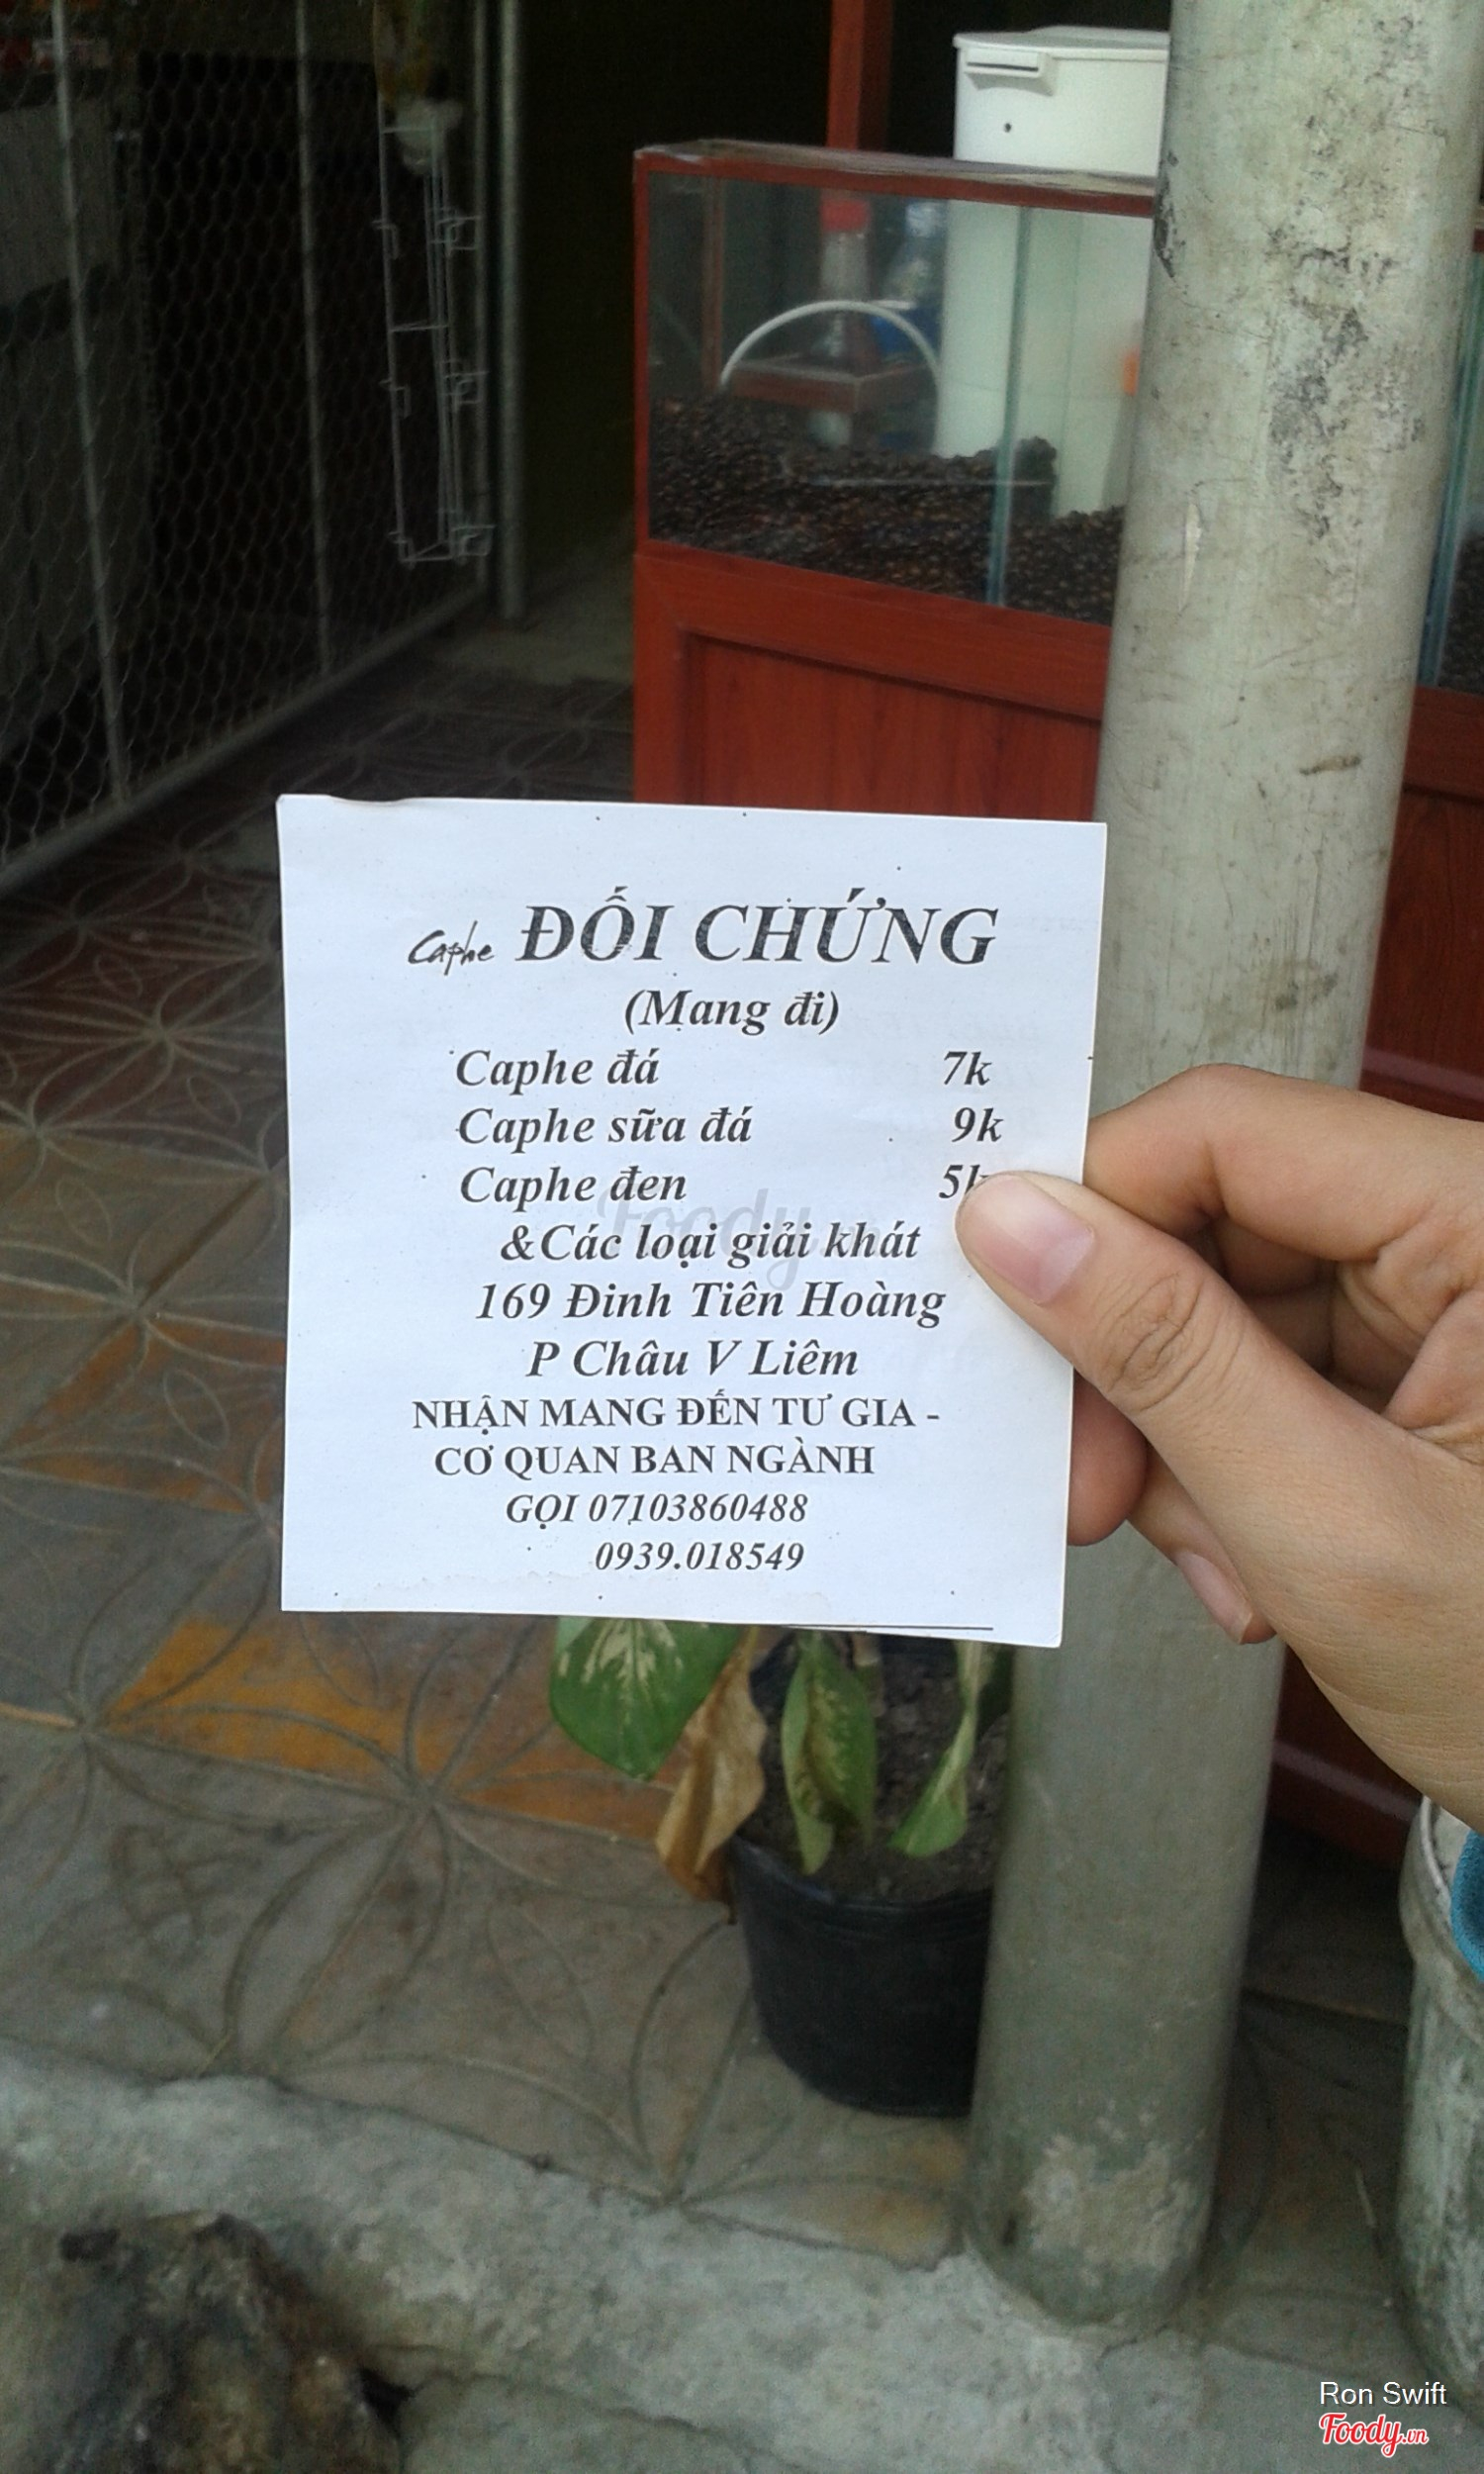 Caphe ĐỐI CHỨNG
(Mang đi)
Caphe đá 7k
Caphe sữa đá 9k
Caphe đen 5k
&Các loại giải khát
169 Đinh Tiên Hoàng
P Châu V Liêm
NHẬN MANG ĐẾN TƯ GIA -
CƠ QUAN BAN NGÀNH
GỌI 07103860488
0939.018549
Foody.vn
Ron Swift
Foody.vn